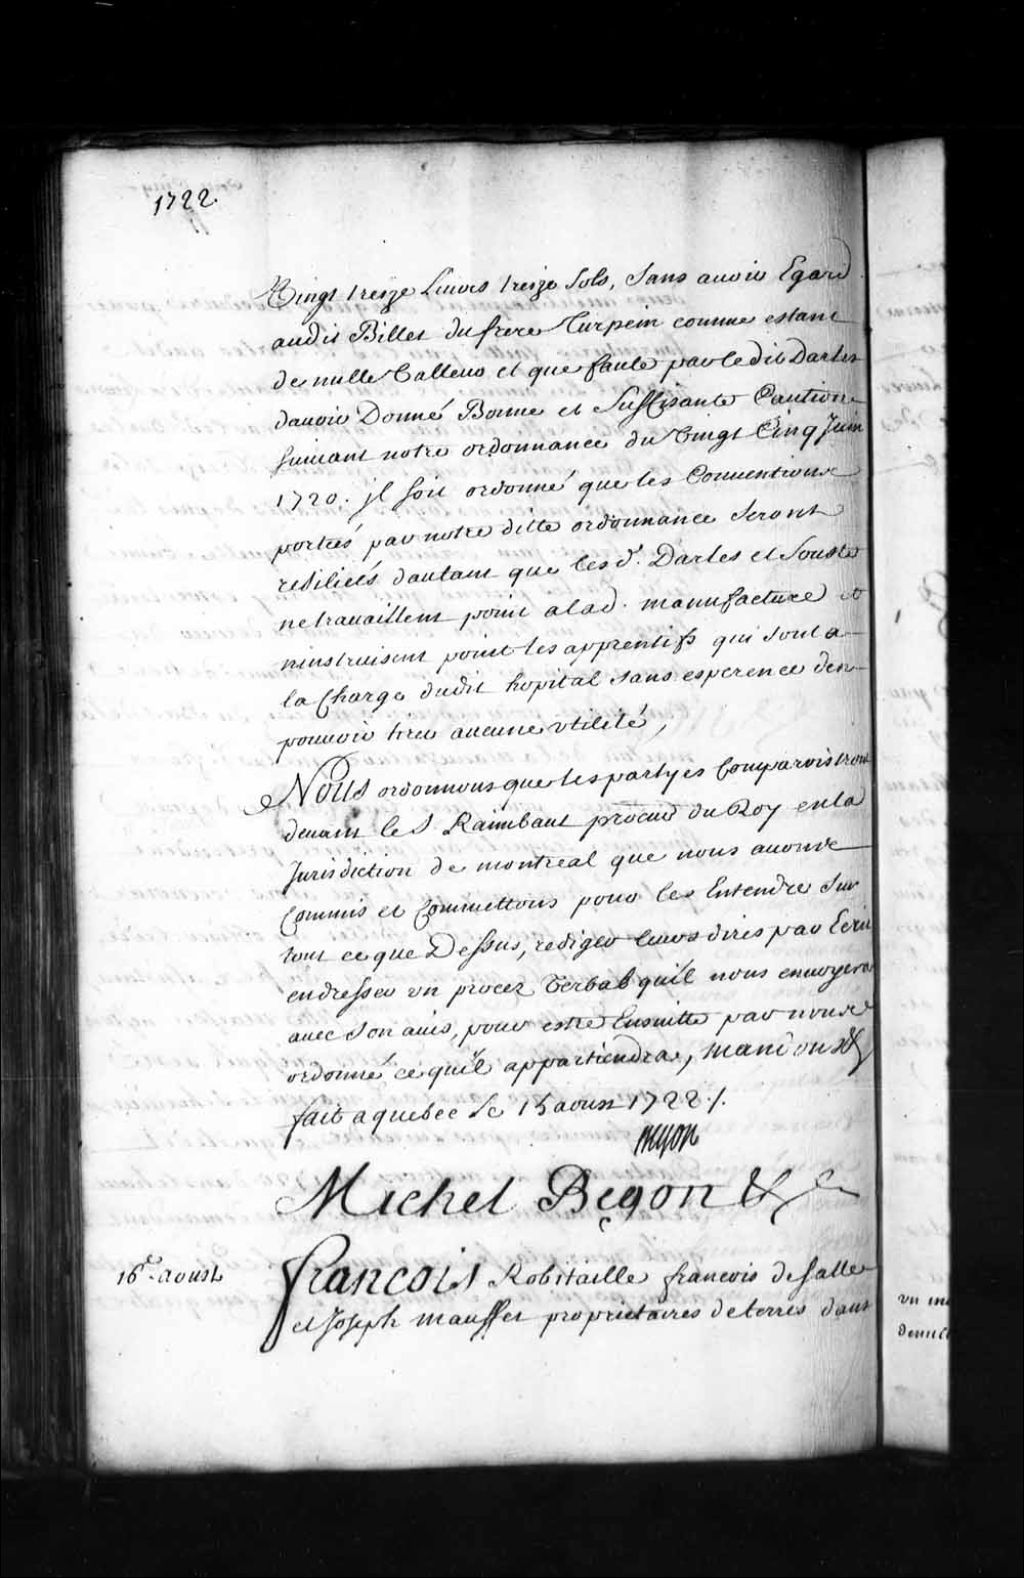 1722.
Vingt treize Livres treize Sols, Sans avoir Egard
audit Billet du frere Turpein comme estant
de nulle Valleur et que faute par ledit Darles
davoir Donné Bonne et Suffisante Caution
suivant notre ordonnance du Vingt Cinq Juin
1720. jl soit ordonné que les Conventions
portées par notre ditte ordonnance seront
resiliées dautant que les d. Darles et Souste
ne travaillent point a lad. manufacture et
ninstruisent point les apprentifs qui sont a
la Charge dudit hopital sans esperence den
pouvoir tirer aucune vtilité,
Nous ordonnons que les partyes Comparoistront
devant le S. Raimbaut procur du Roy en la
Jurisdiction de montreal que nous avons
Commis et Commettons pour les Entendre Sur
tout ce que Dessus, rediger leurs dires par Ecrit
en dresser vn procez Verbal quil nous envoyera
avec son avis, pour estre Ensuitte par nous
ordonné ce quil appartiendra, Mandons &
fait a quebec le 15 aoust 1722 ./.
Begon
Michel Begon &
16e. aoust
francois Robitaille francois de salle
et Joseph mauffet proprietaires de terres dans
vn